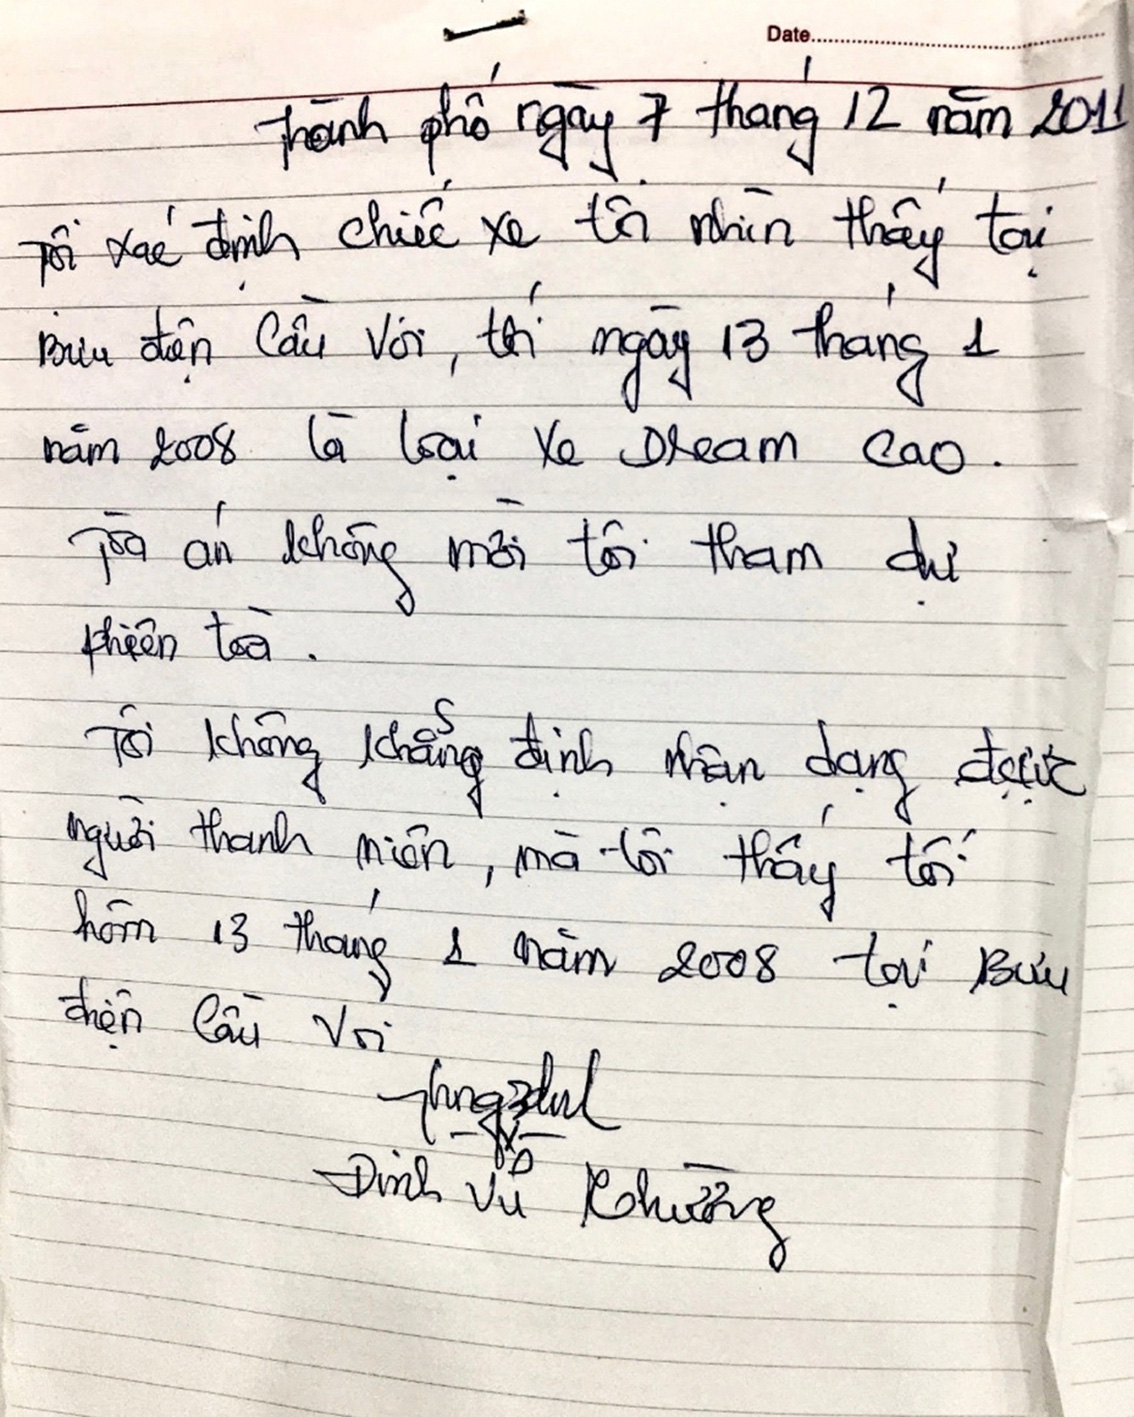 Date
Thành phố ngày 7 tháng 12 năm 2011
Tôi xác định chiếc xe tôi nhìn thấy tại
Bưu điện Cầu Voi, tối ngày 13 tháng 1
năm 2008 là loại xe Dream cao.
Tòa án không mời tôi tham dự
phiên toà.
Tôi không khẳng định nhận dạng được
người thanh niên, mà tôi thấy tối
hôm 13 tháng 1 năm 2008 tại Bưu
điện Cầu Voi
Đinh Vũ Thường